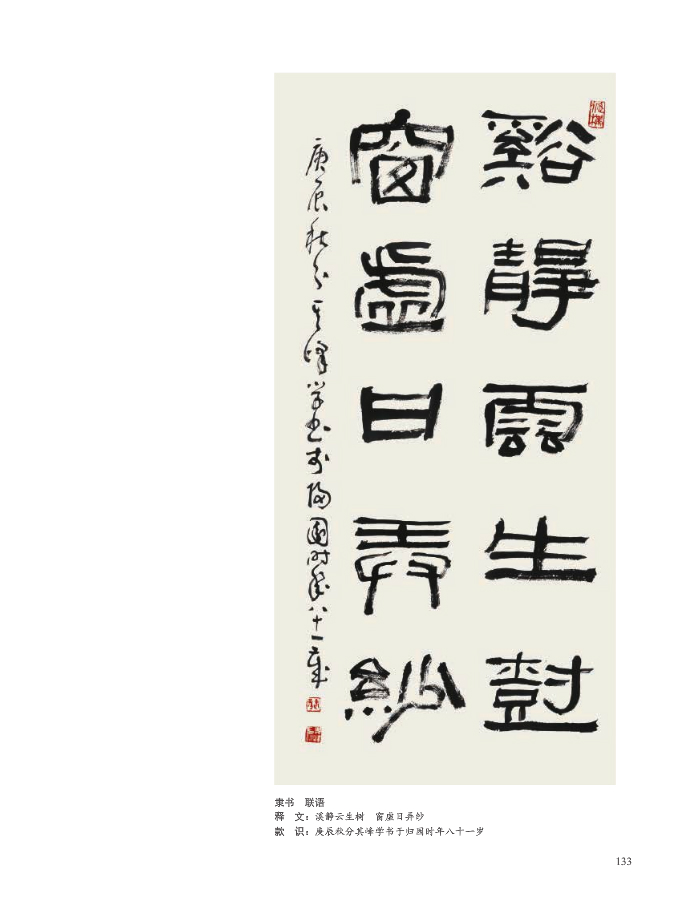 谿靜雲生尌
窗虛日弄紗
庚辰秋分其峰学书于归園时年八十一歲
隶书　联语
释　文：溪静云生树　窗虚日弄纱
款　识：庚辰秋分其峰学书于归园时年八十一岁
133